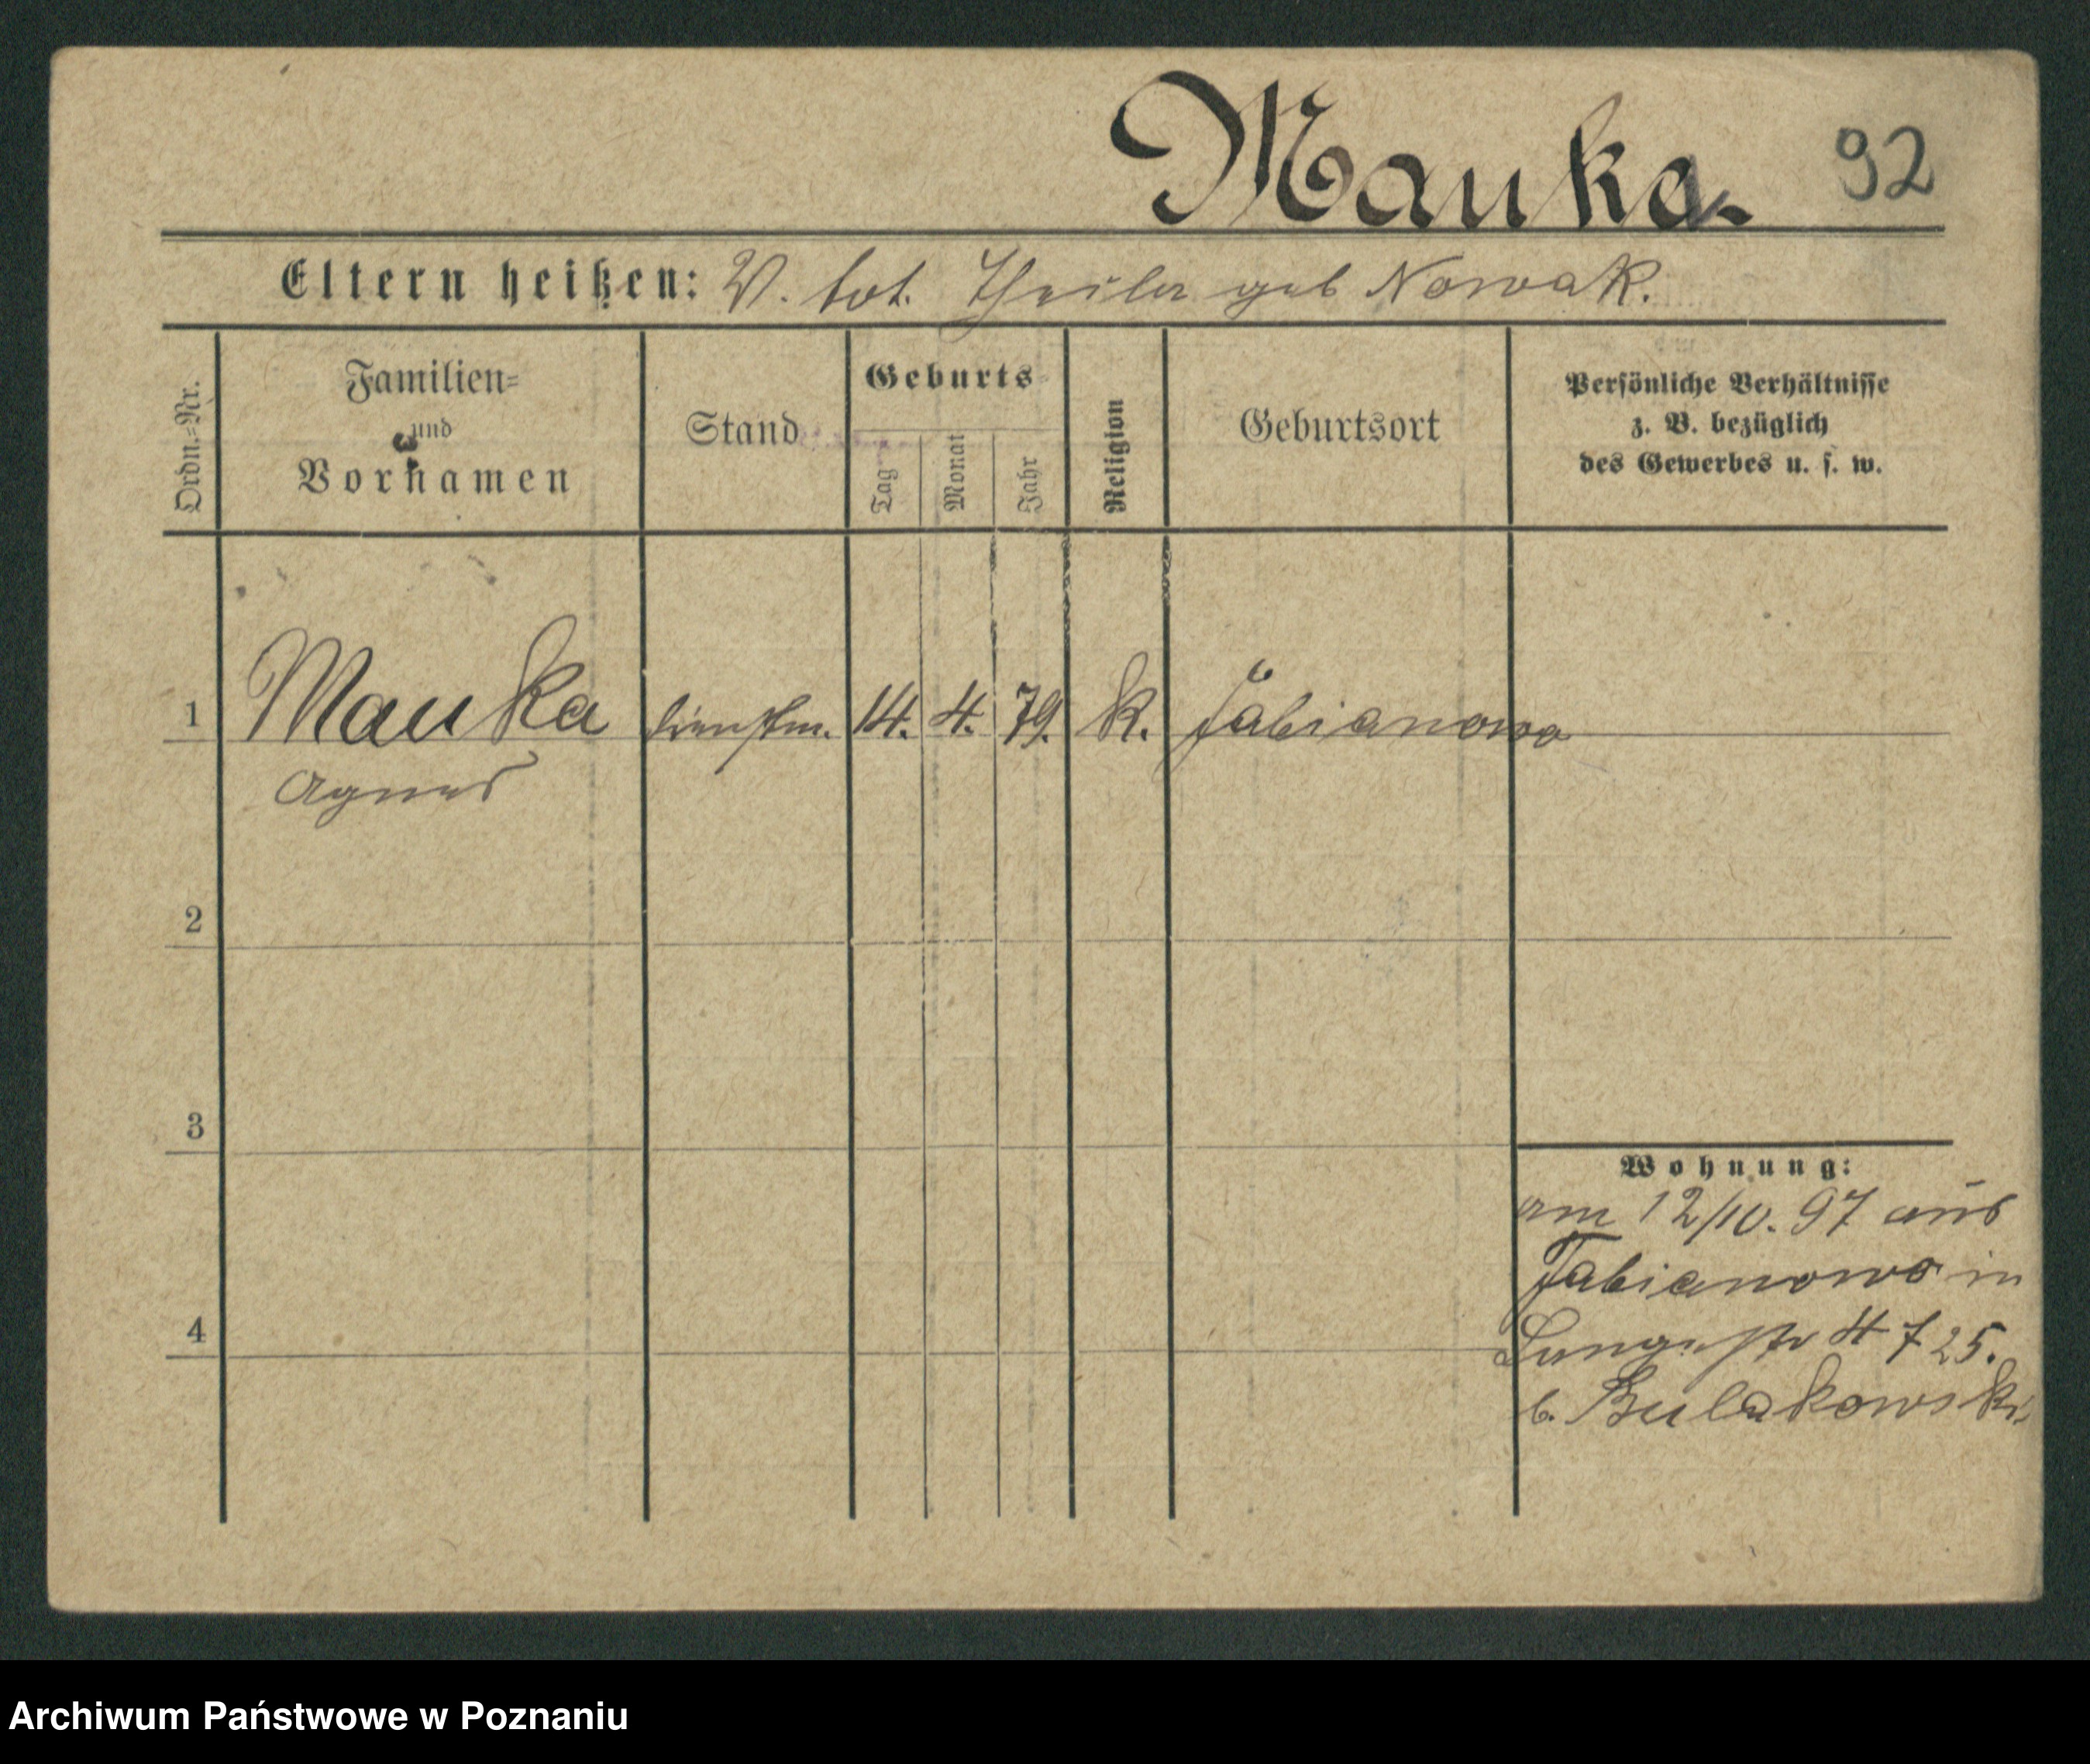 Mauka. 92
Eltern heißen: V. tot. Theila geb Nowak.
Ordn.=Nr.
Familien=
und
Vornamen
Stand
Geburts
Tag
Monat
Jahr
Religion
Geburtsort
Persönliche Verhältnisse
z. B. bezüglich
des Gewerbes u. s. w.
1 Mauka dienstm. 14. 4. 79. K. Fabianowo
Agnes
2
3
Wohnung:
am 12/10. 97 aus
Fabianowo in
4
Langestr 4 25.
b. Bulakowski
Archiwum Państwowe w Poznaniu